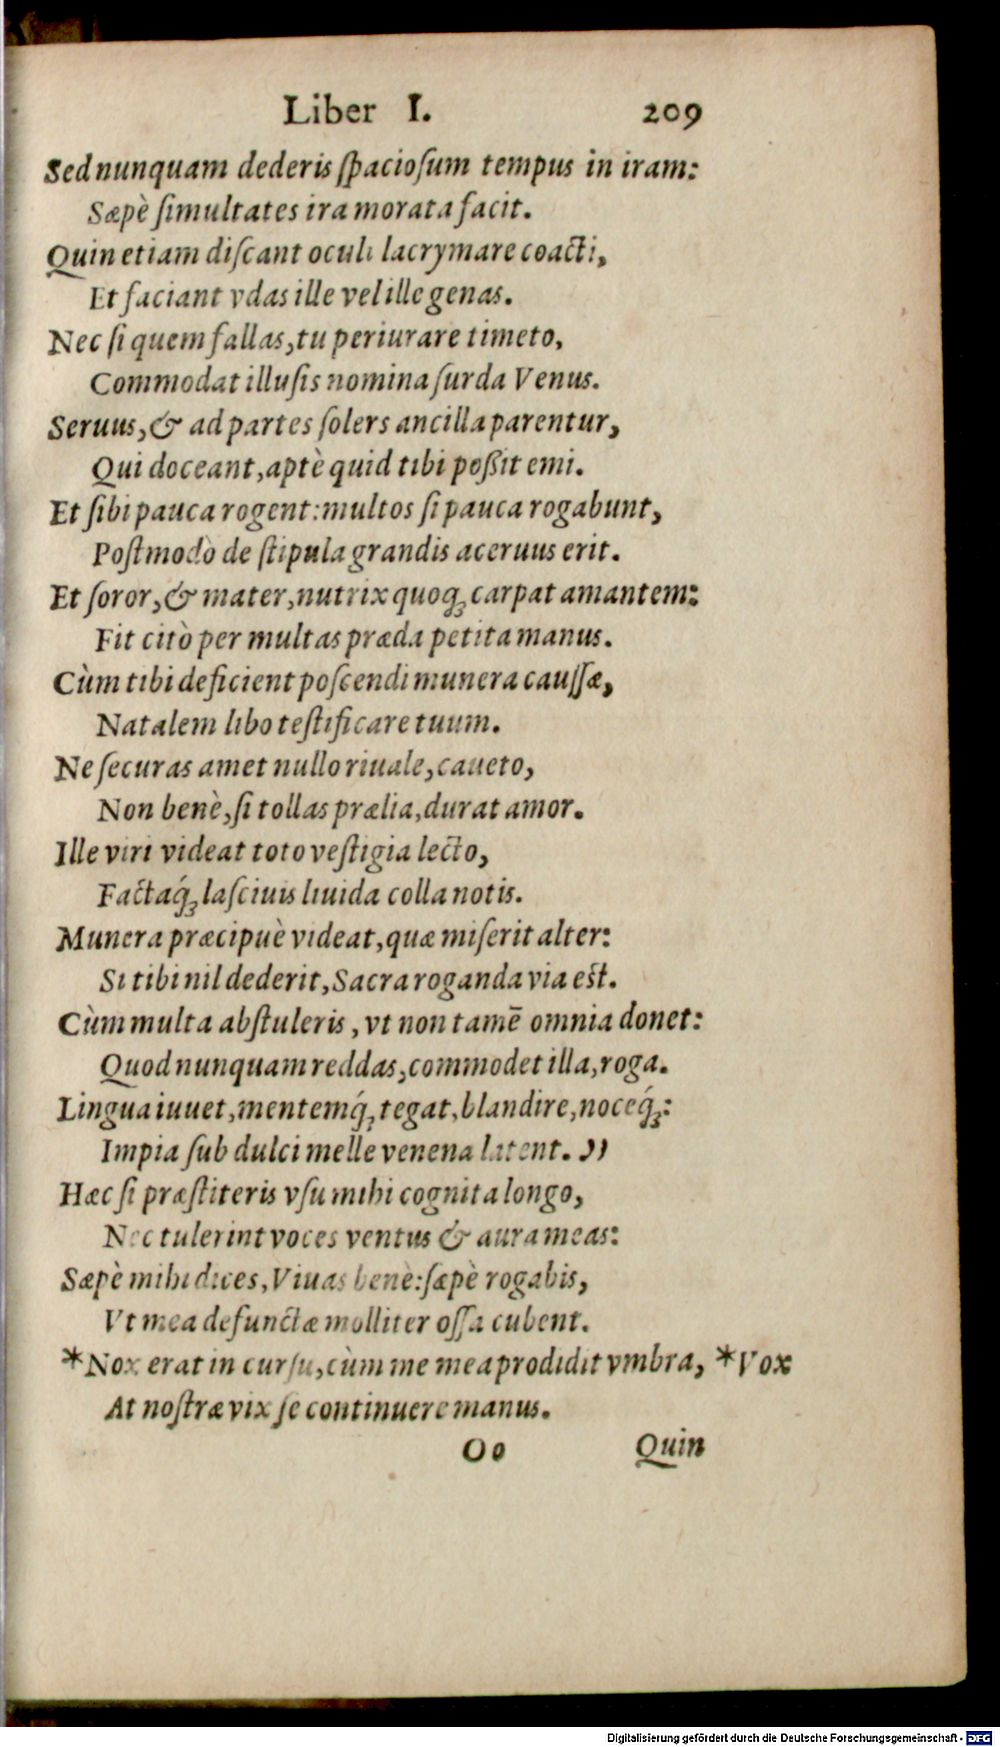 Liber I. 209
Sed nunquam dederis ſpacioſum tempus in iram:
Sæpè ſimultates ira morata facit.
Quin etiam diſcant oculi lacrymare coacti,
Et faciant vdas ille vel ille genas.
Nec ſi quem fallas, tu periurare timeto,
Commodat illuſis nomina ſurda Venus.
Seruus, & ad partes ſolers ancilla parentur,
Qui doceant, aptè quid tibi poßit emi.
Et ſibi pauca rogent: multos ſi pauca rogabunt,
Poſtmodò de ſtipula grandis aceruus erit.
Et ſoror, & mater, nutrix quoq; carpat amantem:
Fit citò per multas præda petita manus.
Cùm tibi deficient poſcendi munera cauſſæ,
Natalem libo teſtificare tuum.
Ne ſecuras amet nullo riuale, caueto,
Non benè, ſi tollas prælia, durat amor.
Ille viri videat toto veſtigia lecto,
Factaq́; laſciuis liuida colla notis.
Munera præcipuè videat, quæ miſerit alter:
Si tibi nil dederit, Sacra roganda via est.
Cùm multa abſtuleris, vt non tamē omnia donet:
Quod nunquam reddas, commodet illa, roga.
Lingua iuuet, mentemq́; tegat, blandire, noceq́;:
Impia ſub dulci melle venena latent. ””
Hæc ſi præſtiteris vſu mihi cognita longo,
Nec tulerint voces ventus & aura meas:
Sæpè mihi dices, Viuas benè: ſæpè rogabis,
Vt mea defunctæ molliter oſſa cubent.
*Nox erat in curſu, cùm me mea prodidit vmbra, *Vox
At noſtræ vix ſe continuere manus.
Oo Quin
Digitalisierung gefördert durch die Deutsche Forschungsgemeinschaft - DFG